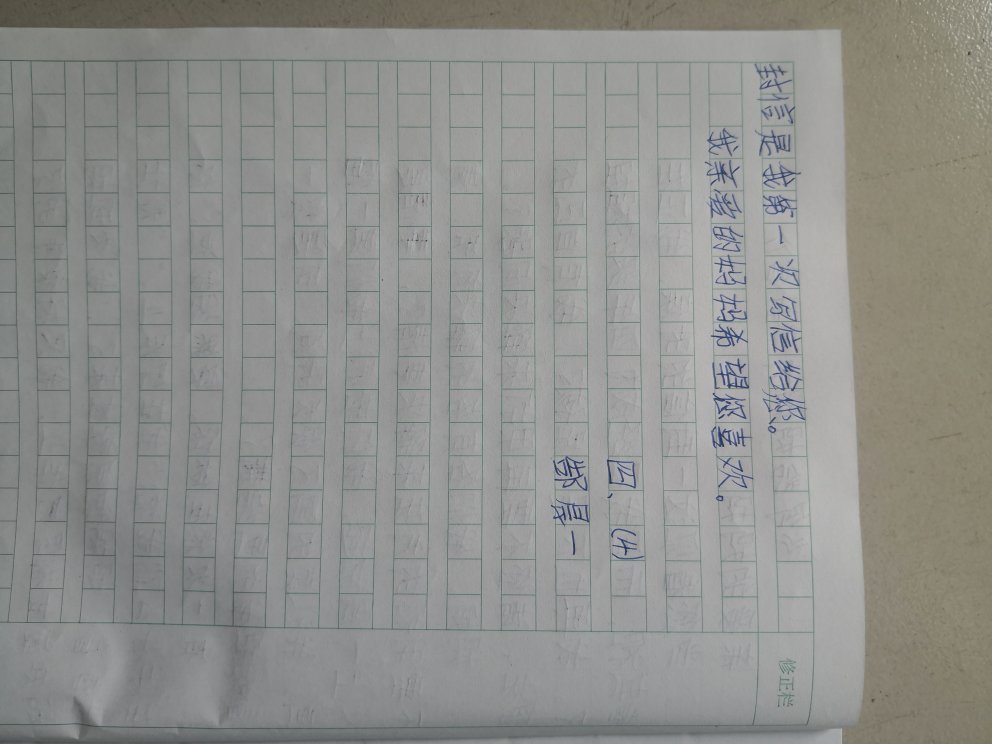 封信是我第一次写信给您。
我亲爱的妈妈希望您喜欢。
四、(4)
邹晨一
修正栏